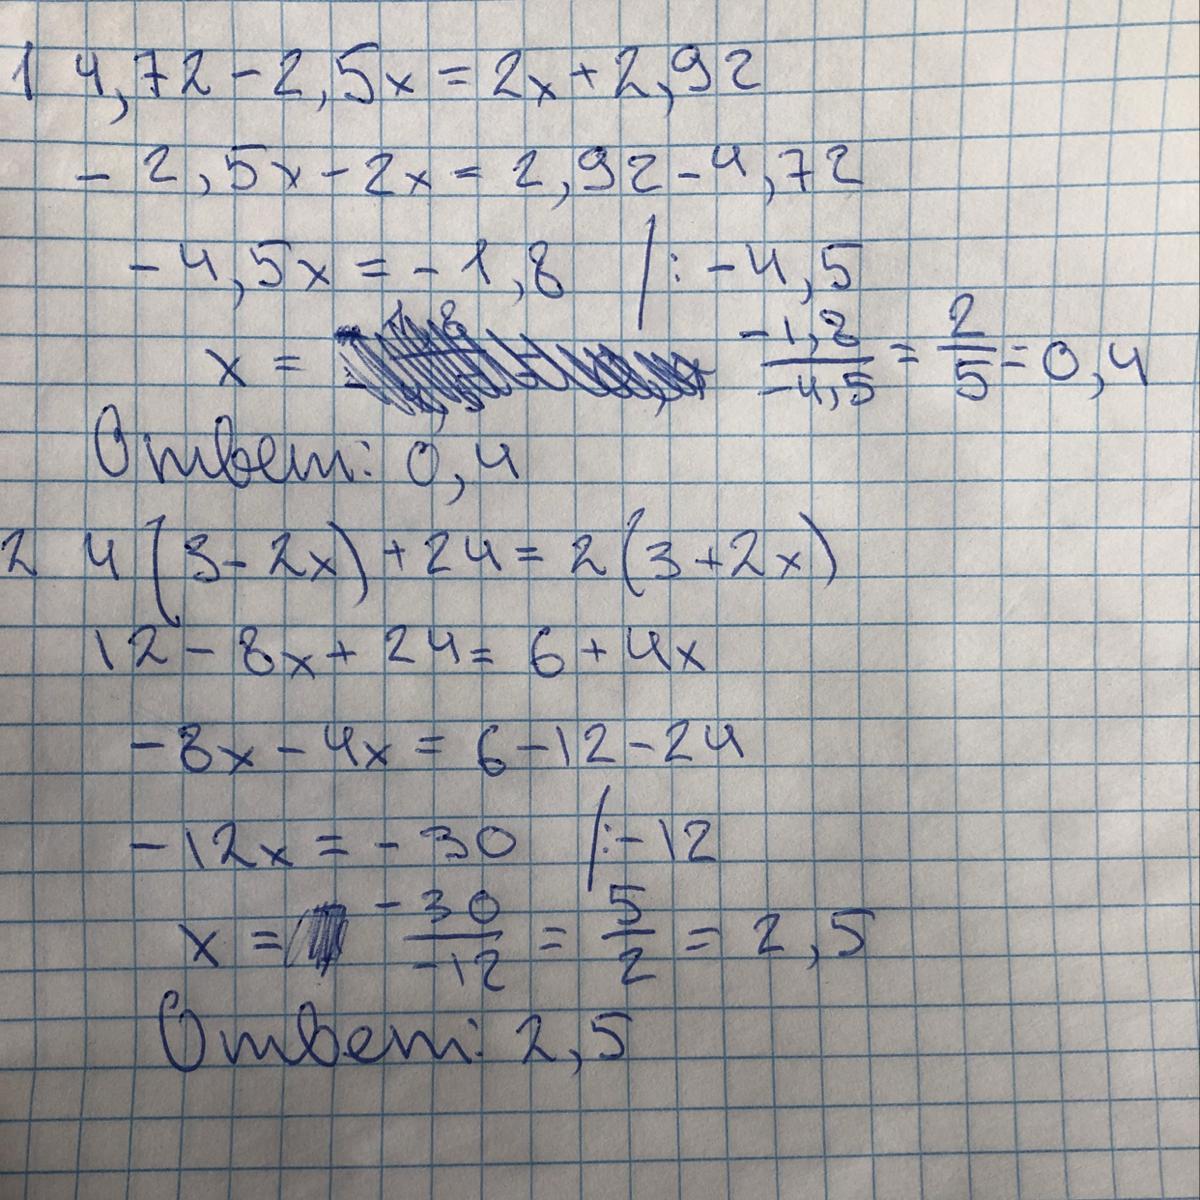 1 4,72 - 2,5x = 2x + 2,92
- 2,5x - 2x = 2,92 - 4,72
- 4,5x = - 1,8 / : - 4,5
x = -1,8/-4,5 = 2/5 = 0,4
Ответ: 0,4
2 4(3 - 2x) + 24 = 2(3 + 2x)
12 - 8x + 24 = 6 + 4x
- 8x - 4x = 6 - 12 - 24
- 12x = - 30 / : - 12
x = -30/-12 = 5/2 = 2,5
Ответ: 2,5